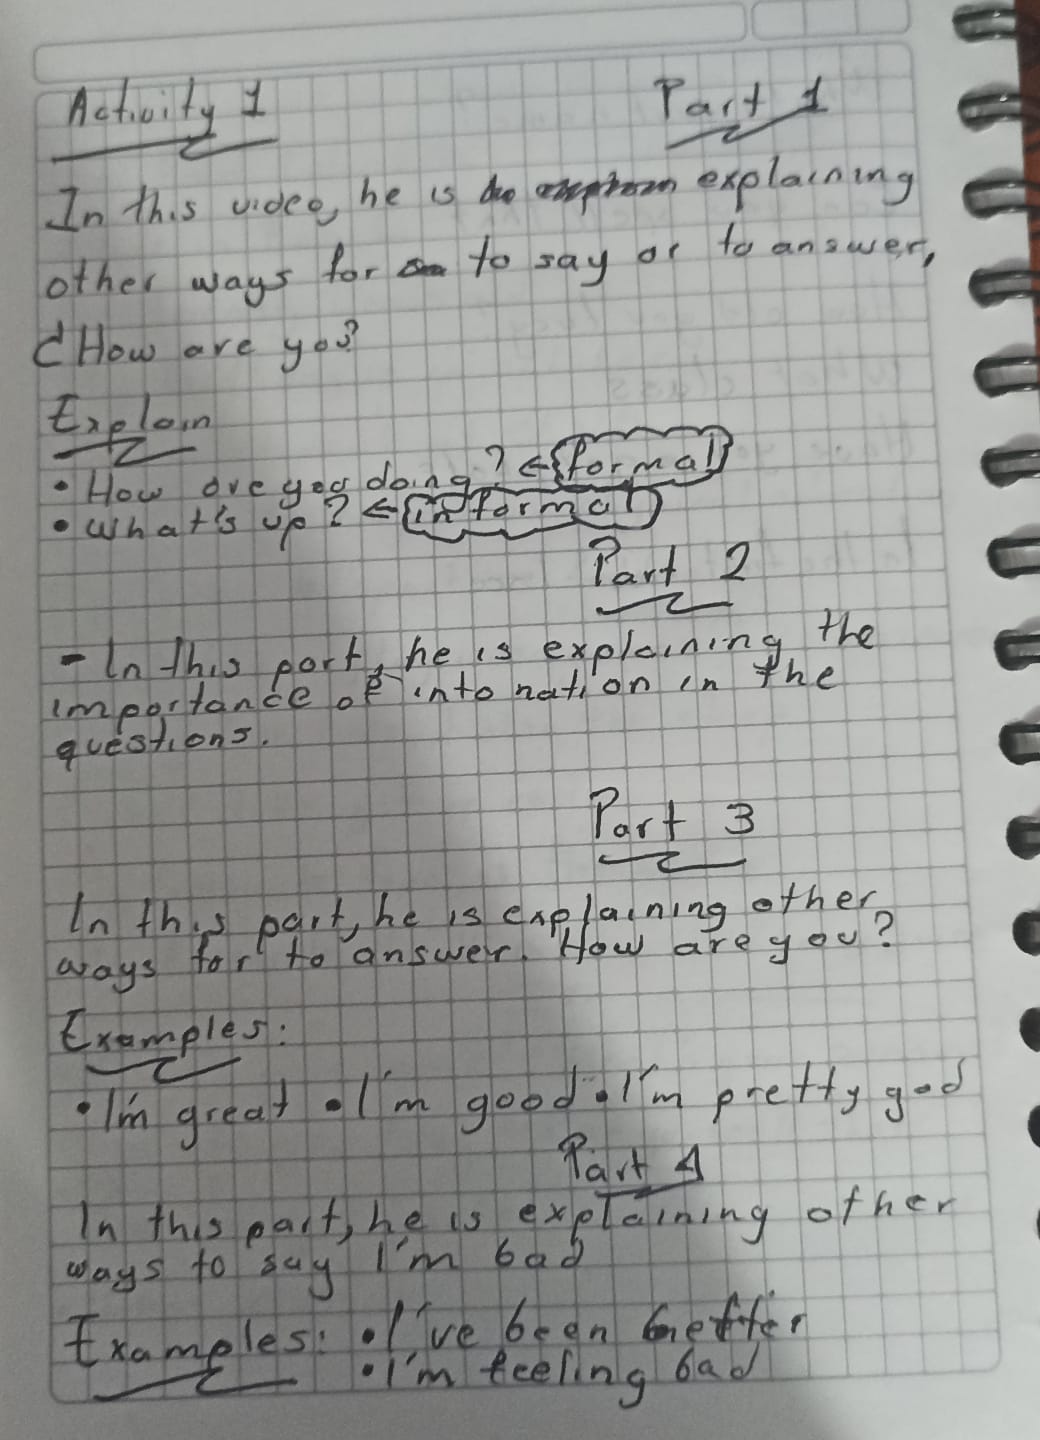 Activity 1 Part 1
In this video, he is explaining
other ways for to say or to answer,
¿How are you?
Explain
• How are you doing? ← formal
• What's up? ← informal
Part 2
- In this part, he is explaining the
importance of intonation in the
questions.
Part 3
In this part, he is explaining other
ways for to answer. How are you?
Examples:
• I'm great • I'm good • I'm pretty god
Part 4
In this part, he is explaining other
ways to say I'm bad
Examples: • I've been better
• I'm feeling bad